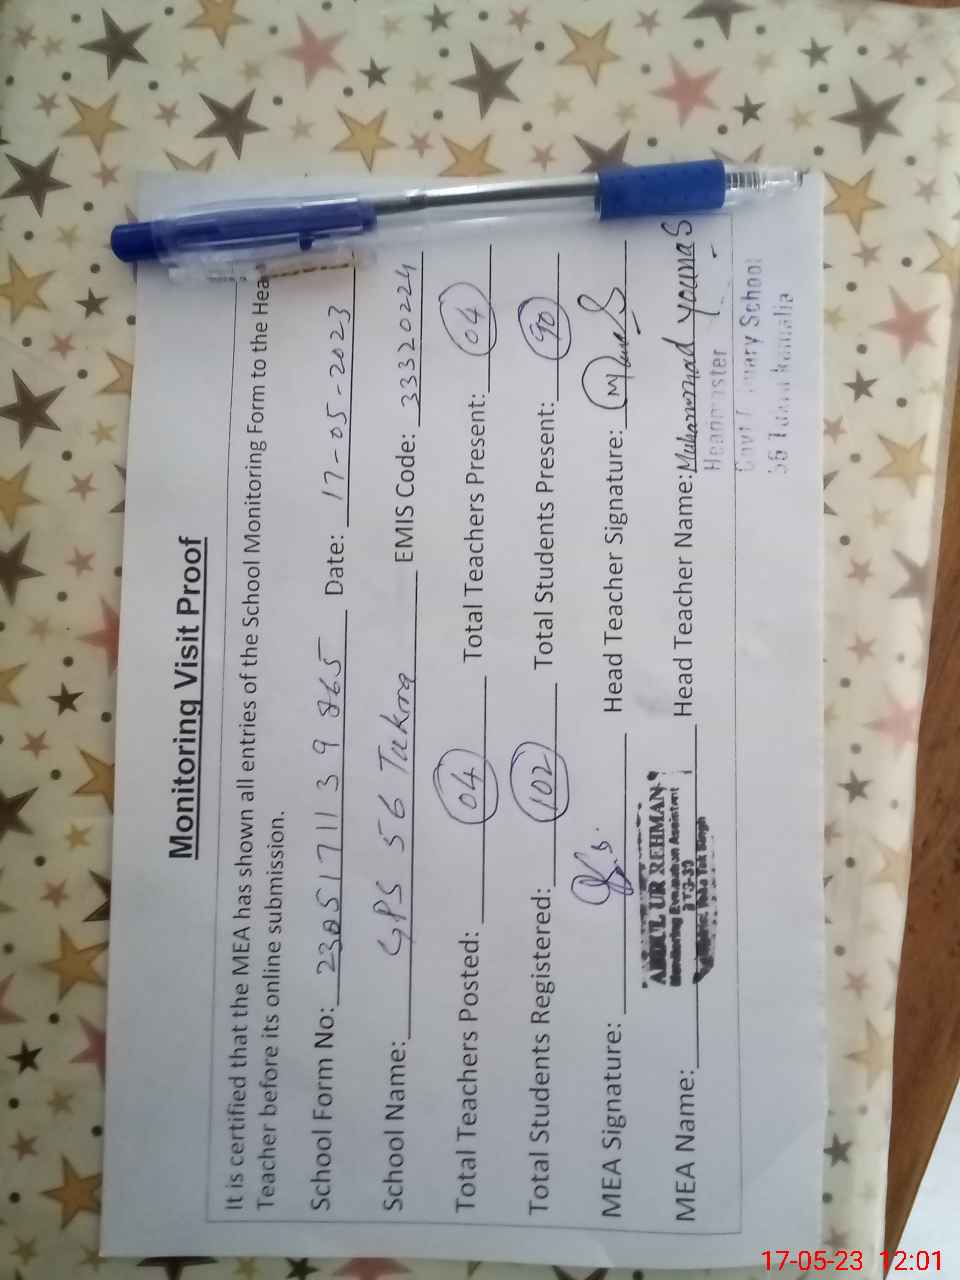 Monitoring Visit Proof
It is certified that the MEA has shown all entries of the School Monitoring Form to the Hea
Teacher before its online submission.
School Form No: 2305171139865 Date: 17-05-2023
School Name: GPS 556 Tukra EMIS Code: 33320224
Total Teachers Posted: 04 Total Teachers Present: 04
Total Students Registered: 102 Total Students Present: 90
MEA Signature: Head Teacher Signature:
ABDUL UR REHMAN
Monitoring Evaluation Assistant
MEA Name: Head Teacher Name: Muhammad Younas
Headmaster
School
17-05-23 12:01